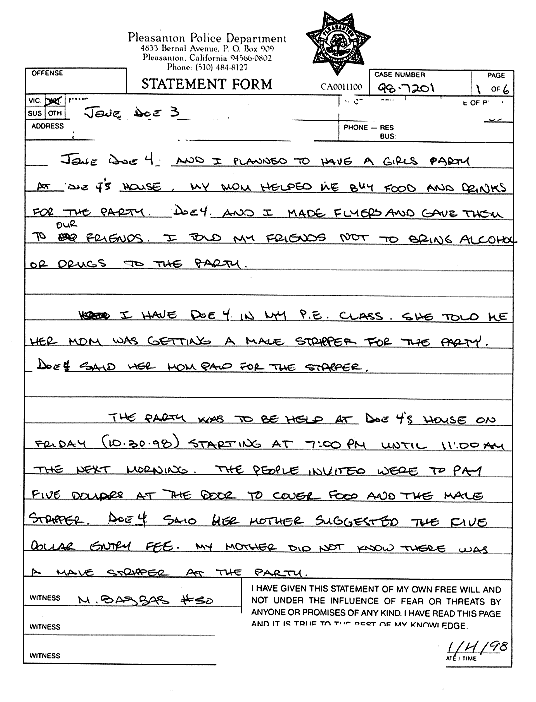 Pleasanton Police Department
4833 Bernal Avenue, P. O. Box 909
Pleasanton, California 94566-0802
Phone: (510) 484-8127
STATEMENT FORM
CA0011100
OFFENSE
CASE NUMBER
98-7201
PAGE
1 OF 6
VIC.
SUS OTH
Jane Doe 3
ADDRESS
PHONE — RES
BUS:
Jane Doe 4 AND I PLANNED TO HAVE A GIRLS PARTY
AT Doe 4's HOUSE. MY MOM HELPED ME BUY FOOD AND DRINKS
FOR THE PARTY. Doe 4 AND I MADE FLYERS AND GAVE THEM
TO OUR FRIENDS. I TOLD MY FRIENDS NOT TO BRING ALCOHOL
OR DRUGS TO THE PARTY.
I HAVE Doe 4 IN MY P.E. CLASS. SHE TOLD ME
HER MOM WAS GETTING A MALE STRIPPER FOR THE PARTY.
Doe 4 SAID HER MOM PAID FOR THE STRIPPER.
THE PARTY WAS TO BE HELD AT Doe 4's HOUSE ON
FRIDAY (10-30-98) STARTING AT 7:00 PM UNTIL 11:00 AM
THE NEXT MORNING. THE PEOPLE INVITED WERE TO PAY
FIVE DOLLARS AT THE DOOR TO COVER FOOD AND THE MALE
STRIPPER. Doe 4 SAID HER MOTHER SUGGESTED THE FIVE
DOLLAR ENTRY FEE. MY MOTHER DID NOT KNOW THERE WAS
A MALE STRIPPER AT THE PARTY.
WITNESS M. BARBAS #50
WITNESS
WITNESS
I HAVE GIVEN THIS STATEMENT OF MY OWN FREE WILL AND
NOT UNDER THE INFLUENCE OF FEAR OR THREATS BY
ANYONE OR PROMISES OF ANY KIND. I HAVE READ THIS PAGE
AND IT IS TRUE TO THE BEST OF MY KNOWLEDGE.
1/4/98
ATE / TIME